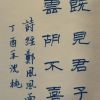 既見君子
雲胡不喜
詩經鄭風風雨
丁酉年沈桃